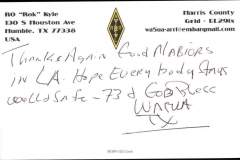 RO "Rok" Kyle
130 S Houston Ave
Humble, TX 77338
USA
Harris County
Grid - EL29ix
wa5ua-arrl@embarqmail.com
Thanks Again Good
in LA. Hope Every body Stays
Safe - 73 & God Bless
WA5UA
TX